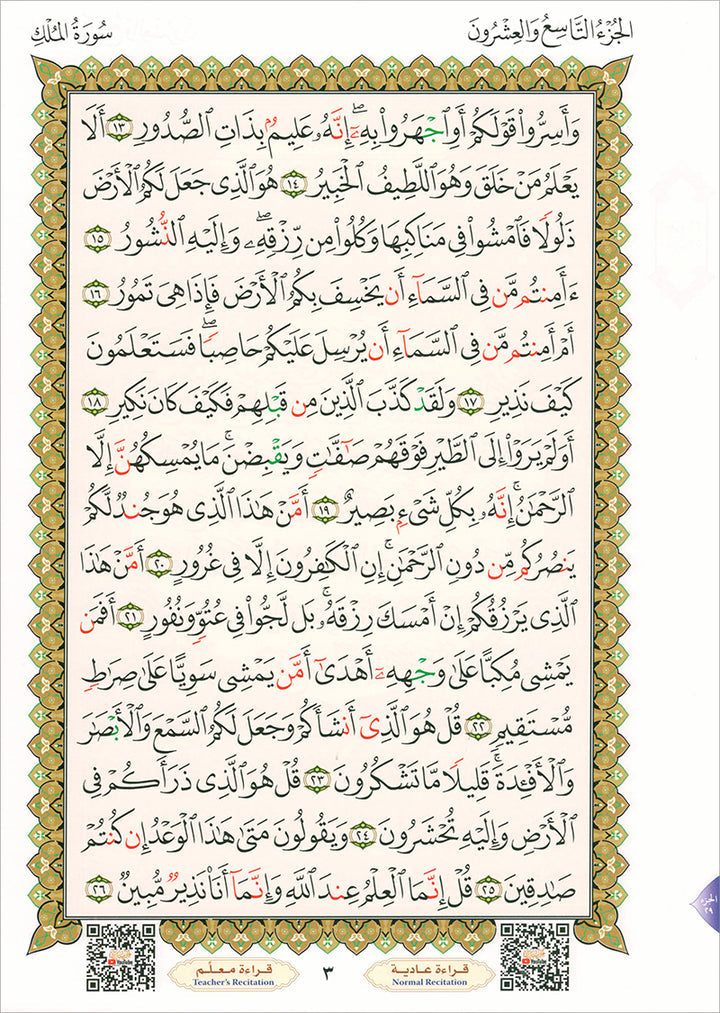 الجزء التاسع والعشرون
سورة الملك
وَأَسِرُّوا۟ قَوْلَكُمْ أَوِ ٱجْهَرُوا۟ بِهِۦٓ ۖ إِنَّهُۥ عَلِيمٌۢ بِذَاتِ ٱلصُّدُورِ ١٣ أَلَا
يَعْلَمُ مَنْ خَلَقَ وَهُوَ ٱللَّطِيفُ ٱلْخَبِيرُ ١٤ هُوَ ٱلَّذِى جَعَلَ لَكُمُ ٱلْأَرْضَ
ذَلُولًا فَٱمْشُوا۟ فِى مَنَاكِبِهَا وَكُلُوا۟ مِن رِّزْقِهِۦ ۖ وَإِلَيْهِ ٱلنُّشُورُ ١٥
ءَأَمِنتُم مَّن فِى ٱلسَّمَآءِ أَن يَخْسِفَ بِكُمُ ٱلْأَرْضَ فَإِذَا هِىَ تَمُورُ ١٦
أَمْ أَمِنتُم مَّن فِى ٱلسَّمَآءِ أَن يُرْسِلَ عَلَيْكُمْ حَاصِبًا ۖ فَسَتَعْلَمُونَ
كَيْفَ نَذِيرِ ١٧ وَلَقَدْ كَذَّبَ ٱلَّذِينَ مِن قَبْلِهِمْ فَكَيْفَ كَانَ نَكِيرِ ١٨
أَوَلَمْ يَرَوْا۟ إِلَى ٱلطَّيْرِ فَوْقَهُمْ صَـٰٓفَّـٰتٍ وَيَقْبِضْنَ ۚ مَا يُمْسِكُهُنَّ إِلَّا
ٱلرَّحْمَـٰنُ ۚ إِنَّهُۥ بِكُلِّ شَىْءٍۭ بَصِيرٌ ١٩ أَمَّنْ هَـٰذَا ٱلَّذِى هُوَ جُندٌ لَّكُمْ
يَنصُرُكُم مِّن دُونِ ٱلرَّحْمَـٰنِ ۚ إِنِ ٱلْكَـٰفِرُونَ إِلَّا فِى غُرُورٍ ٢٠ أَمَّنْ هَـٰذَا
ٱلَّذِى يَرْزُقُكُمْ إِنْ أَمْسَكَ رِزْقَهُۥ ۚ بَل لَّجُّوا۟ فِى عُتُوٍّ وَنُفُورٍ ٢١ أَفَمَن
يَمْشِى مُكِبًّا عَلَىٰ وَجْهِهِۦٓ أَهْدَىٰٓ أَمَّن يَمْشِى سَوِيًّا عَلَىٰ صِرَٰطٍ
مُّسْتَقِيمٍ ٢٢ قُلْ هُوَ ٱلَّذِىٓ أَنشَأَكُمْ وَجَعَلَ لَكُمُ ٱلسَّمْعَ وَٱلْأَبْصَـٰرَ
وَٱلْأَفْـِٔدَةَ ۖ قَلِيلًا مَّا تَشْكُرُونَ ٢٣ قُلْ هُوَ ٱلَّذِى ذَرَأَكُمْ فِى
ٱلْأَرْضِ وَإِلَيْهِ تُحْشَرُونَ ٢٤ وَيَقُولُونَ مَتَىٰ هَـٰذَا ٱلْوَعْدُ إِن كُنتُمْ
صَـٰدِقِينَ ٢٥ قُلْ إِنَّمَا ٱلْعِلْمُ عِندَ ٱللَّهِ وَإِنَّمَآ أَنَا۠ نَذِيرٌ مُّبِينٌ ٢٦
الجزء
٢٩
قراءة عادية
Normal Recitation
٣
قراءة معلّم
Teacher's Recitation
YouTube
YouTube